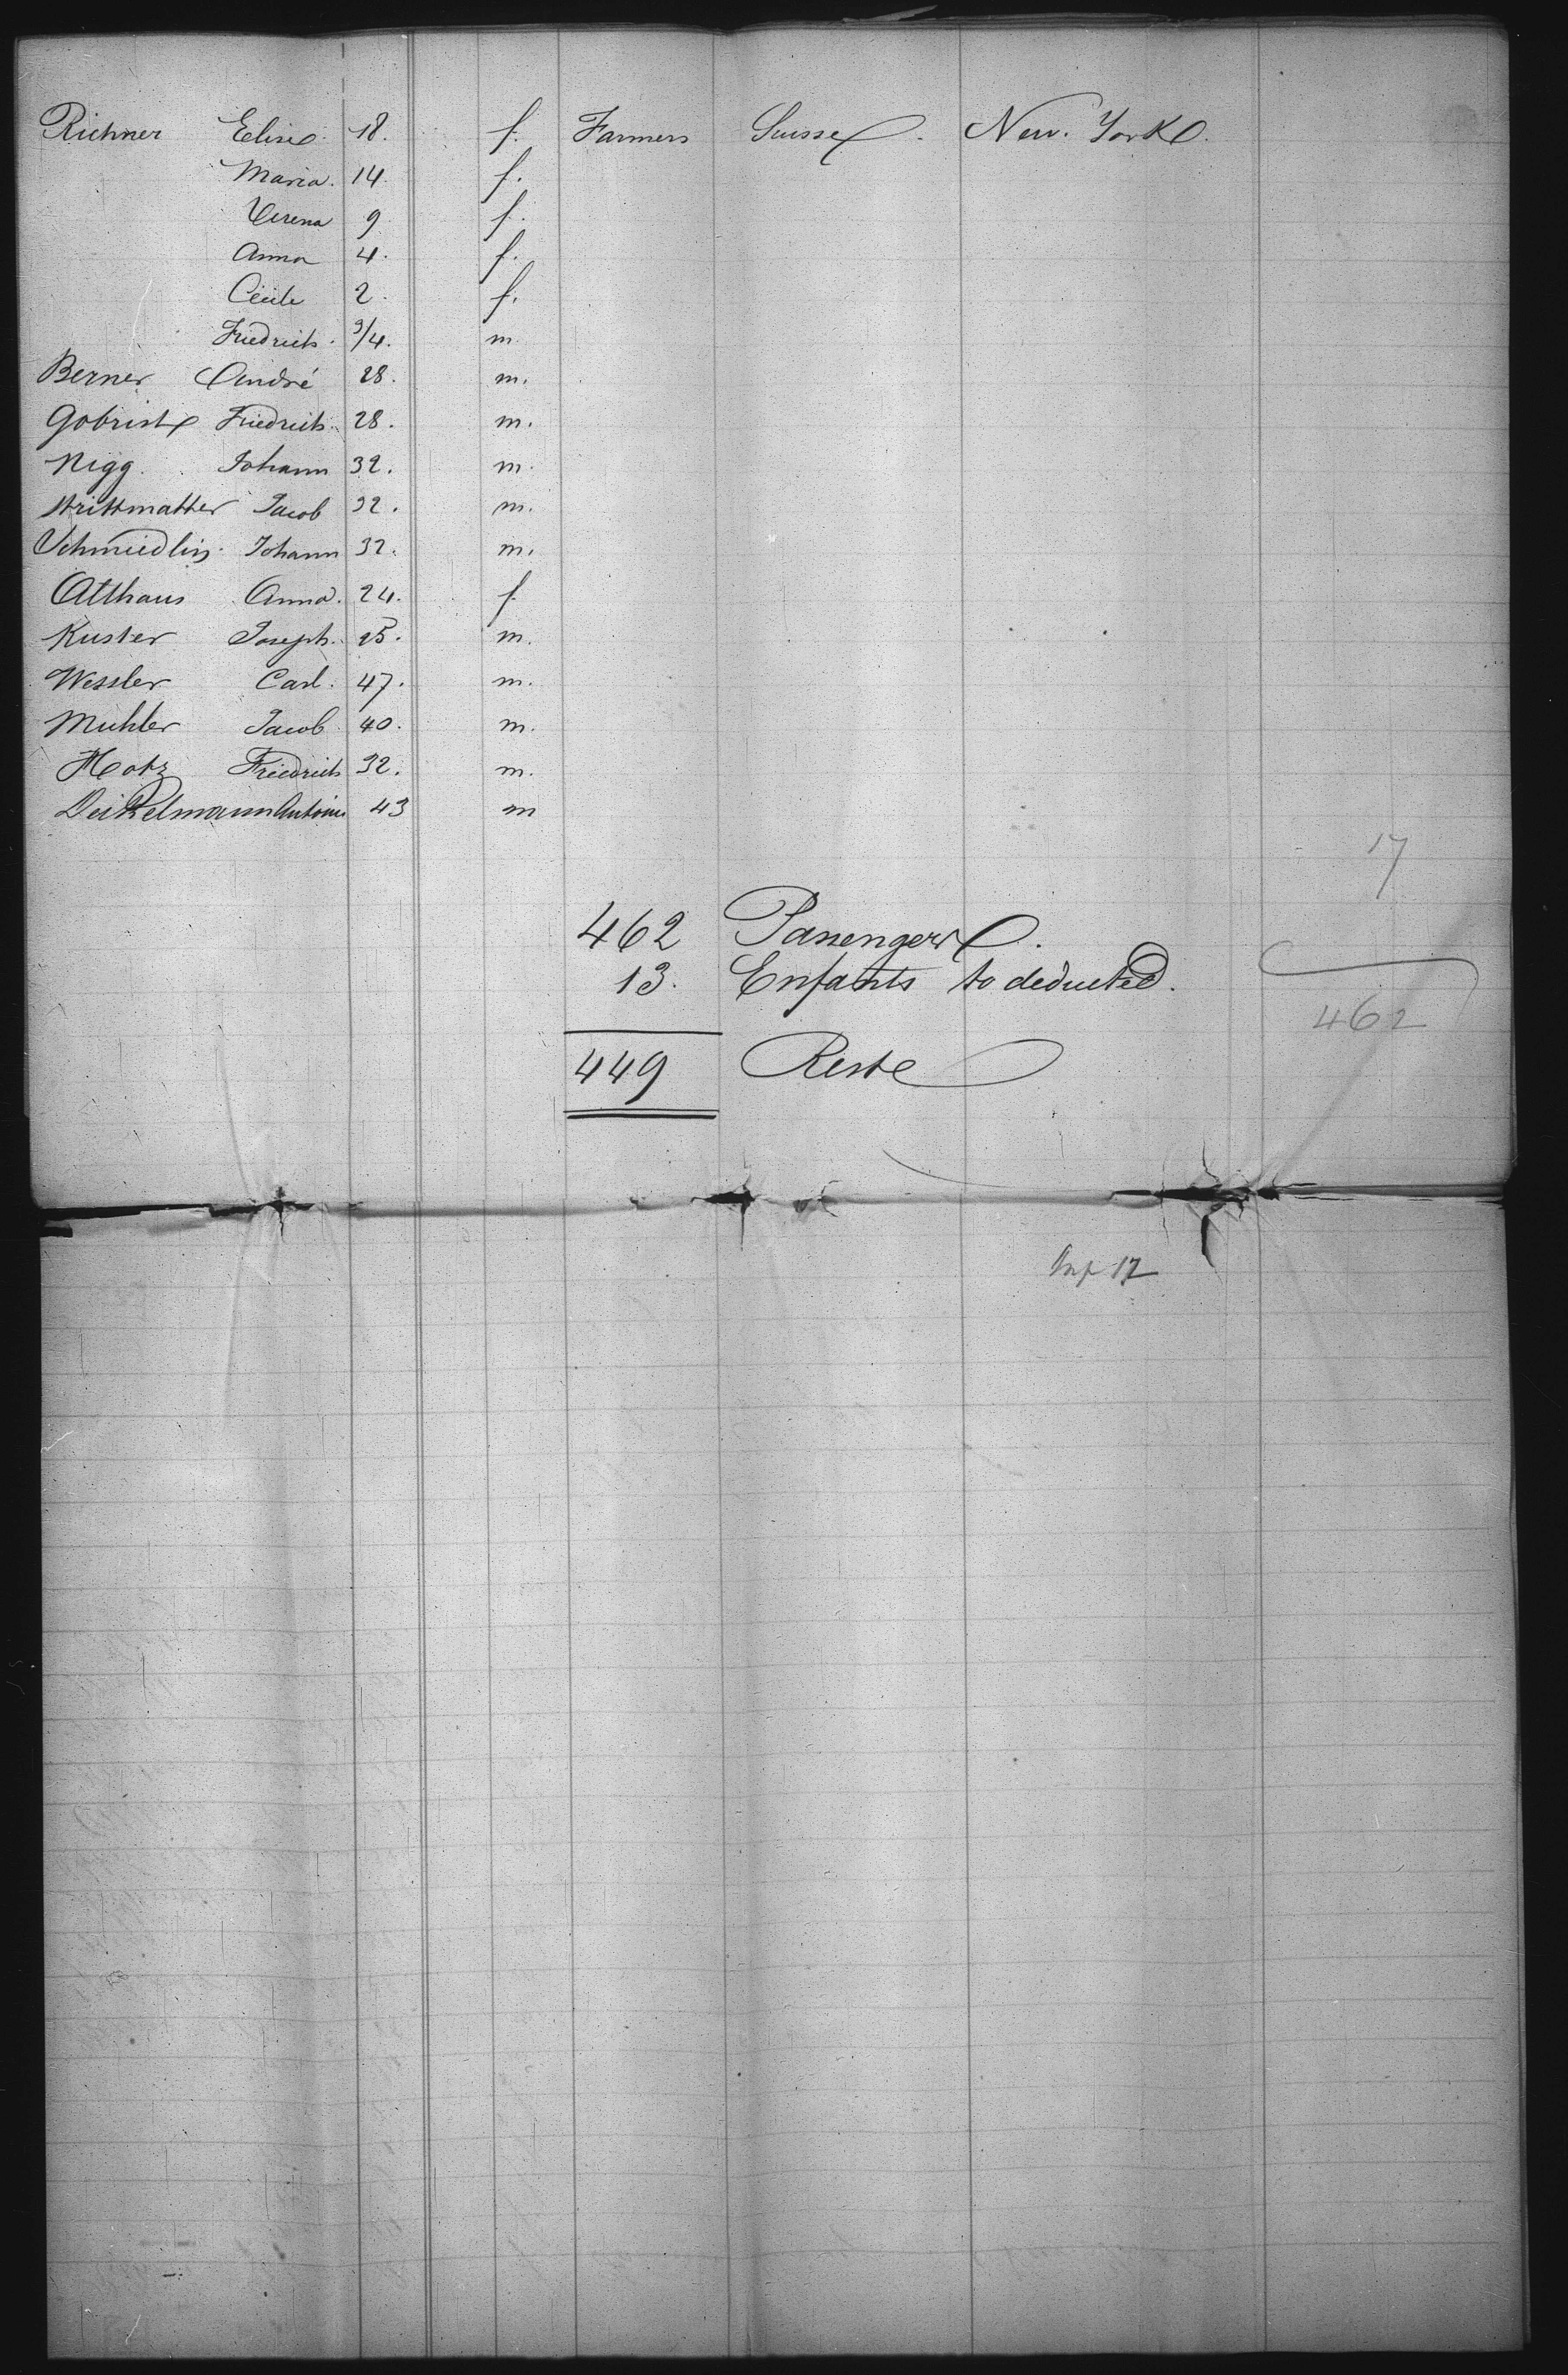 Richner Elise 18. f. Farmers Suisse. New. York.
Maria. 14. f.
Verena 9 f.
Anna 4. f.
Cécile 2. f.
Friedrich. 9/4. m.
Berner André 28. m.
Gobrist Friedrich. 28. m.
Nigg. Johann 32. m.
Strittmatter Jacob 32. m.
Schmiedlin. Johann 32. m.
Althaus Anna. 24. f
Kuster Joseph. 25. m.
Wessler Carl. 47. m.
Muhler Jacob 40. m.
Hotz Friedrich 32. m.
Deikelmann Antoine 43 m
17
462 Passengers.
13. Enfants to deducted.
462
449 Reste
Inf 17